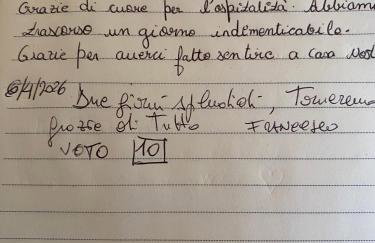 Grazie di cuore per l'ospitalità. Abbiamo
trascorso un giorno indimenticabile.
Grazie per averci fatto sentire a casa
6/4/2026 Due giorni splendidi, Torneremo
Grazie di Tutto FRANCESCO
VOTO 10